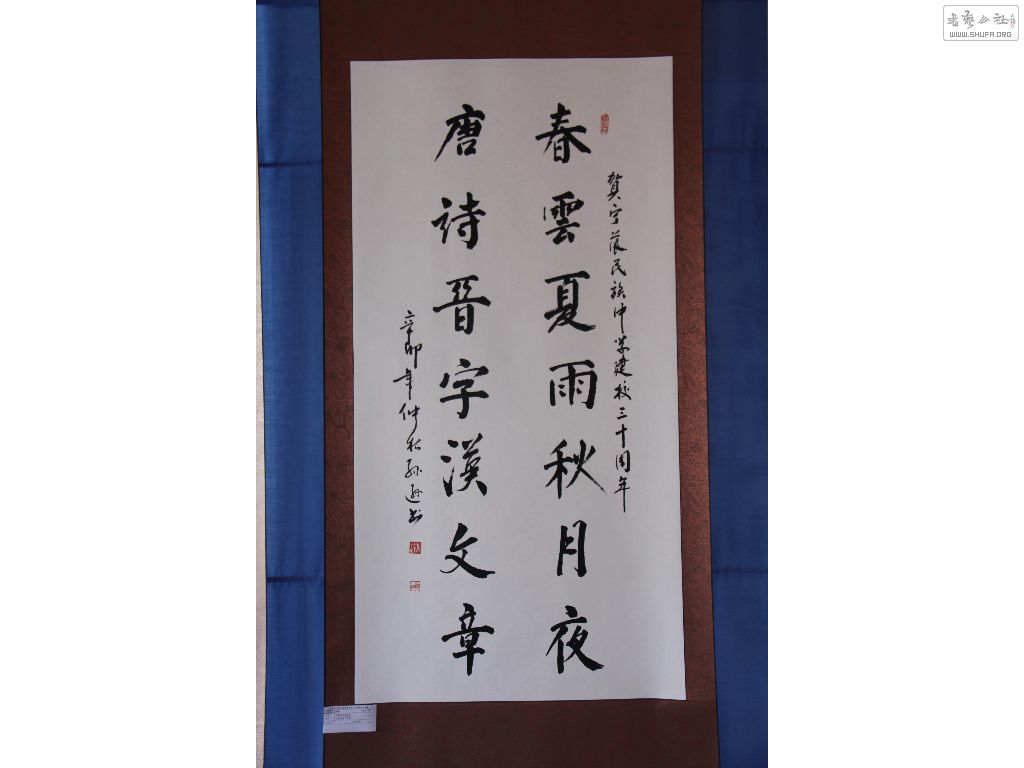 賀宁蒗民族中学建校三十周年
春雲夏雨秋月夜
唐詩晉字漢文章
辛卯年仲秋孫逊書
书艺公社
WWW.SHUFA.ORG